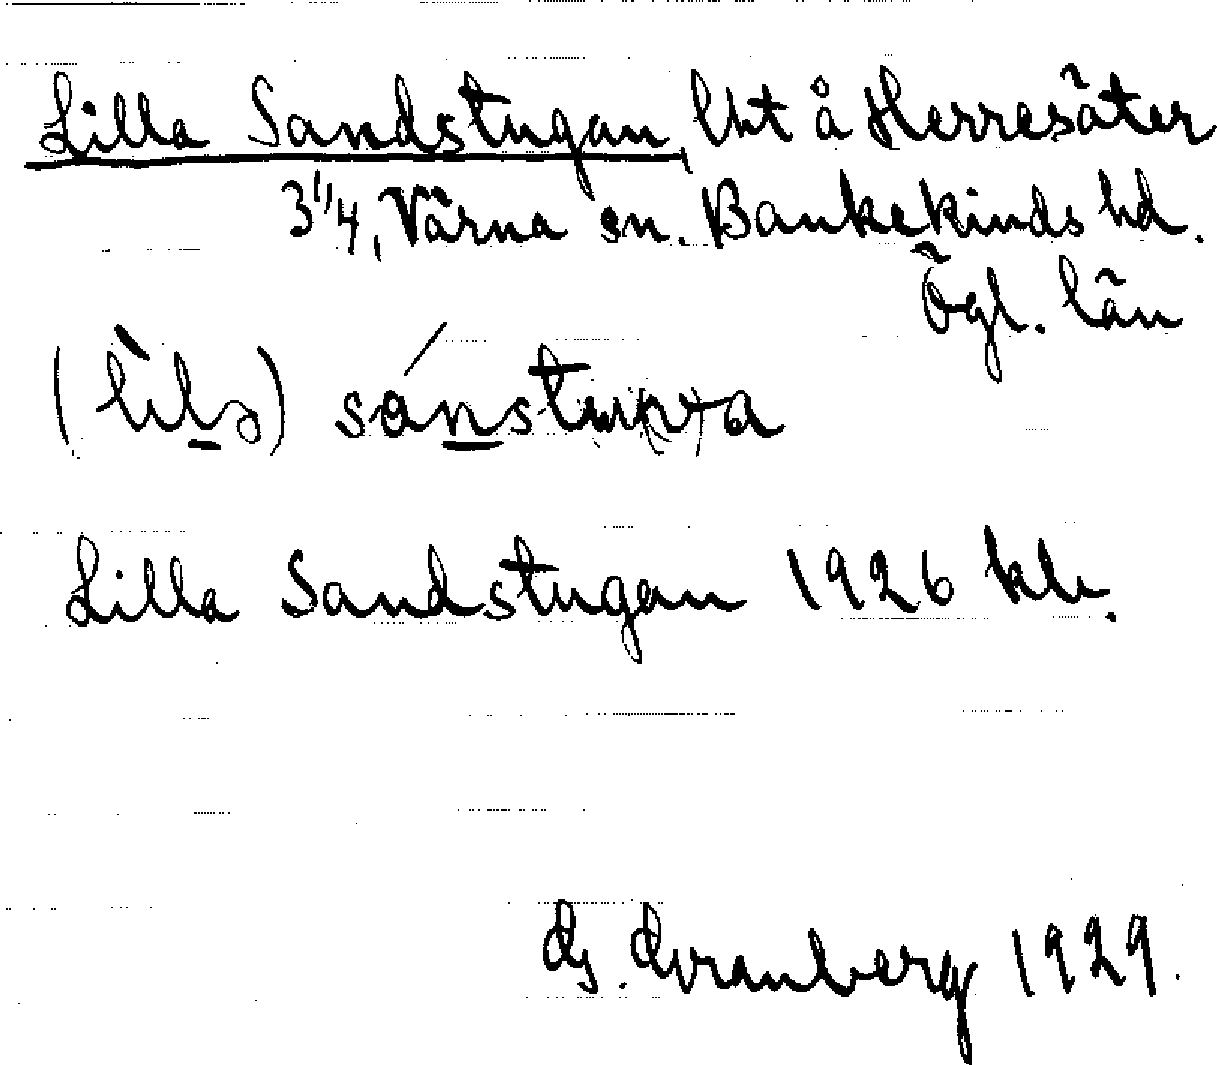 Lilla Sandstugan, lht å Herresäter
3 1/4, Värna sn. Bankekinds hd.
Ögl. län
Lilla Sandstugan 1926 klr.
G. Granberg 1929.